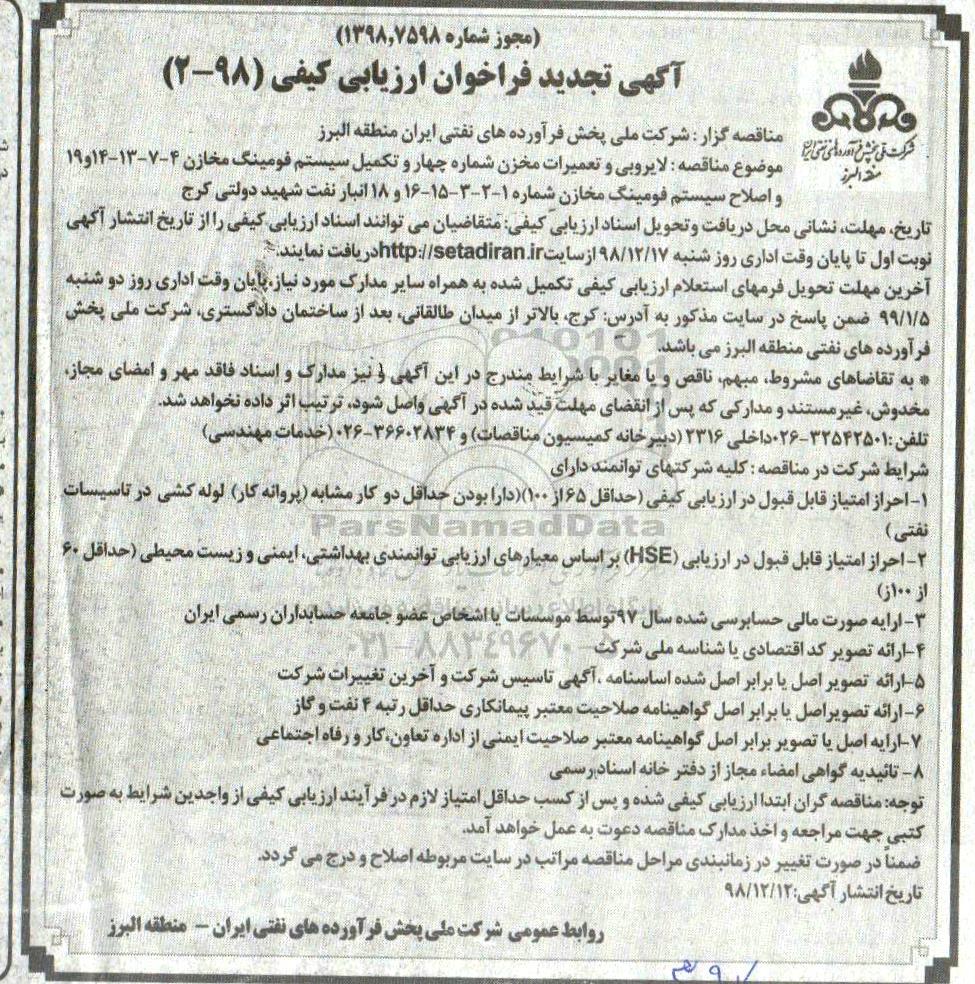 (مجوز شماره ۱۳۹۸,۷۵۹۸)
آگهی تجدید فراخوان ارزیابی کیفی (۹۸-۲)
شرکت ملی پخش فرآورده های نفتی ایران
منطقه البرز
مناقصه گزار : شرکت ملی پخش فرآورده های نفتی ایران منطقه البرز
موضوع مناقصه : لایروبی و تعمیرات مخزن شماره چهار و تکمیل سیستم فومینگ مخازن ۴-۷-۱۳-۱۴و۱۹
و اصلاح سیستم فومینگ مخازن شماره ۱-۲-۳-۱۵-۱۶ و ۱۸ انبار نفت شهید دولتی کرج
تاریخ، مهلت، نشانی محل دریافت وتحویل اسناد ارزیابی کیفی: متقاضیان می توانند اسناد ارزیابی کیفی را از تاریخ انتشار آگهی
نوبت اول تا پایان وقت اداری روز شنبه ۹۸/۱۲/۱۷ ازسایتhttp://setadiran.irدریافت نمایند.
آخرین مهلت تحویل فرمهای استعلام ارزیابی کیفی تکمیل شده به همراه سایر مدارک مورد نیاز،پایان وقت اداری روز دو شنبه
۹۹/۱/۵ ضمن پاسخ در سایت مذکور به آدرس: کرج، بالاتر از میدان طالقانی، بعد از ساختمان دادگستری، شرکت ملی پخش
فرآورده های نفتی منطقه البرز می باشد.
* به تقاضاهای مشروط، مبهم، ناقص و یا مغایر با شرایط مندرج در این آگهی و نیز مدارک و اسناد فاقد مهر و امضای مجاز،
مخدوش، غیرمستند و مدارکی که پس از انقضای مهلت قید شده در آگهی واصل شود، ترتیب اثر داده نخواهد شد.
تلفن :۳۲۵۴۲۵۰۱-۰۲۶داخلی ۲۳۱۶ (دبیرخانه کمیسیون مناقصات) و ۳۶۶۰۲۸۳۴-۰۲۶ (خدمات مهندسی)
شرایط شرکت در مناقصه : کلیه شرکتهای توانمند دارای
۱-احراز امتیاز قابل قبول در ارزیابی کیفی (حداقل ۶۵ از ۱۰۰)(دارا بودن حداقل دو کار مشابه (پروانه کار) لوله کشی در تاسیسات
نفتی)
ParsNamadData
۲- احراز امتیاز قابل قبول در ارزیابی (HSE) بر اساس معیارهای ارزیابی توانمندی بهداشتی، ایمنی و زیست محیطی (حداقل ۶۰
از ۱۰۰ز)
۳-ارایه صورت مالی حسابرسی شده سال ۹۷توسط موسسات یا اشخاص عضو جامعه حسابداران رسمی ایران
۴-ارائه تصویر کد اقتصادی یا شناسه ملی شرکت
۰۲۱-۸۸۳۴۹۶۷۰-۵
۵-ارائه تصویر اصل یا برابر اصل شده اساسنامه ،آگهی تاسیس شرکت و آخرین تغییرات شرکت
۶-ارائه تصویراصل یا برابر اصل گواهینامه صلاحیت معتبر پیمانکاری حداقل رتبه ۴ نفت و گاز
۷-ارایه اصل یا تصویر برابر اصل گواهینامه معتبر صلاحیت ایمنی از اداره تعاون،کار و رفاه اجتماعی
۸- تائیدیه گواهی امضاء مجاز از دفتر خانه اسناد رسمی
توجه: مناقصه گران ابتدا ارزیابی کیفی شده و پس از کسب حداقل امتیاز لازم در فرآیند ارزیابی کیفی از واجدین شرایط به صورت
کتبی جهت مراجعه و اخذ مدارک مناقصه دعوت به عمل خواهد آمد.
ضمناً در صورت تغییر در زمانبندی مراحل مناقصه مراتب در سایت مربوطه اصلاح و درج می گردد.
تاریخ انتشار آگهی:۹۸/۱۲/۱۲
روابط عمومی شرکت ملی پخش فرآورده های نفتی ایران – منطقه البرز